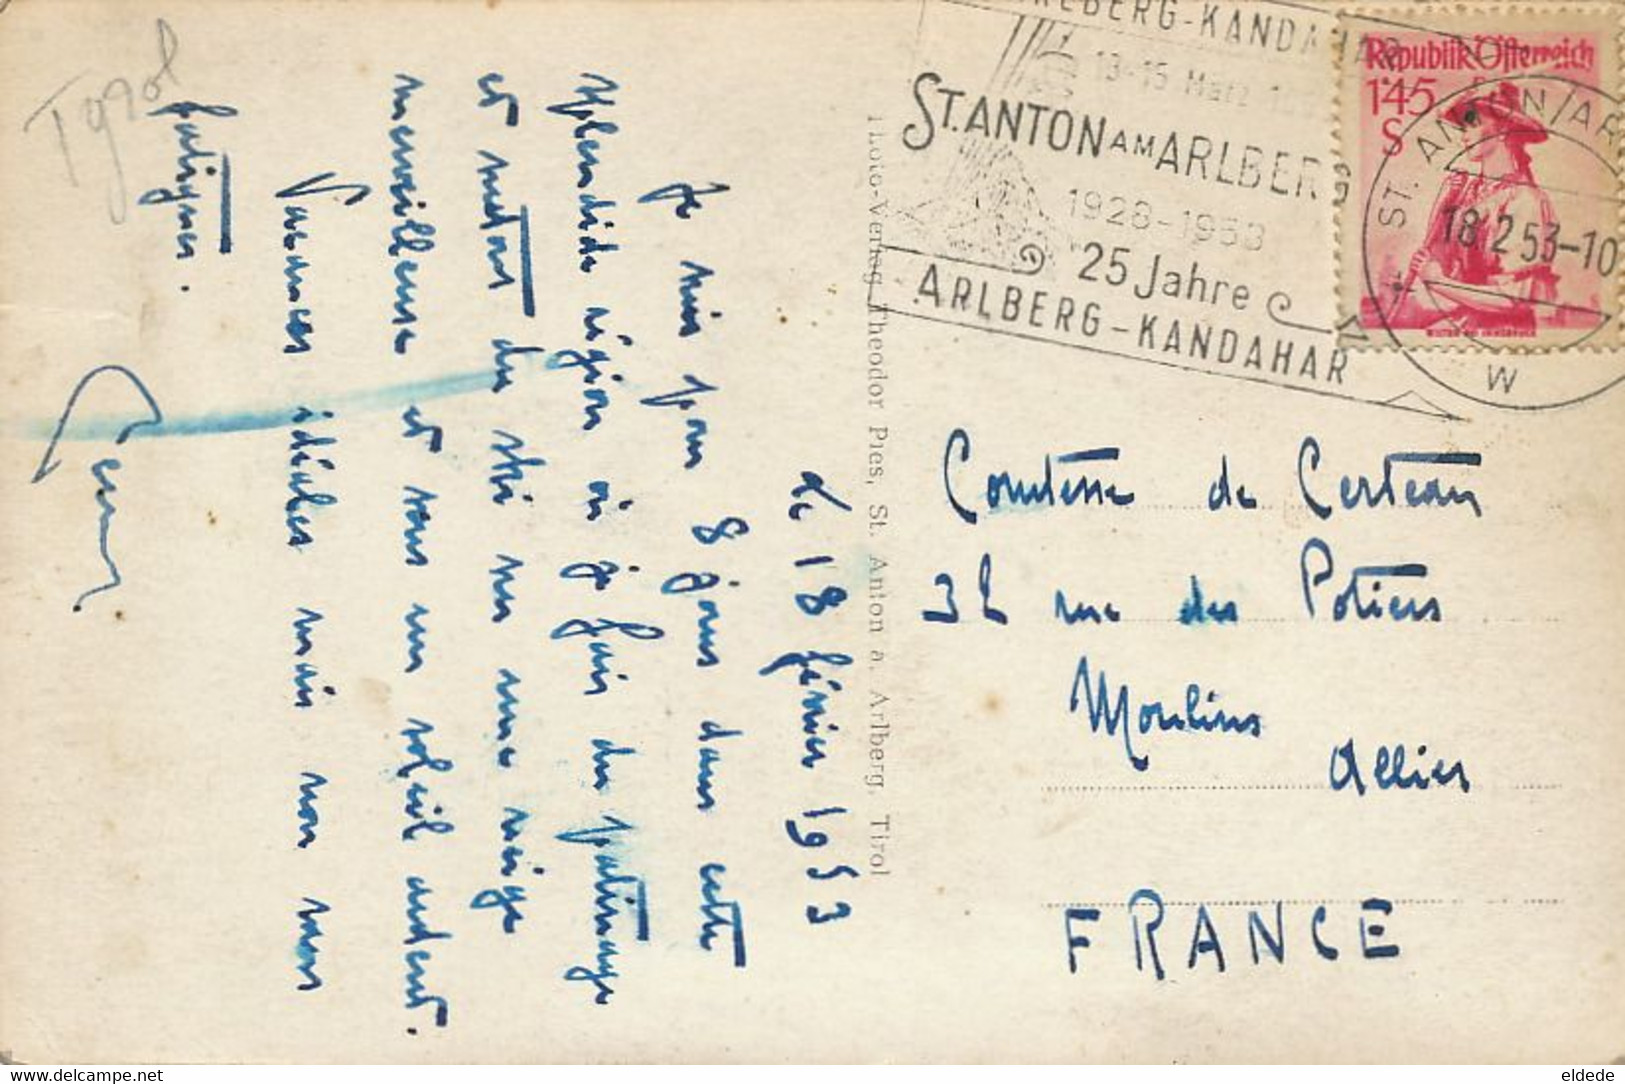 Tyrol
Le 18 février 1953
Je suis pour 8 jours dans cette
splendide région où je fais du patinage
et surtout du ski sur une neige
merveilleuse et sous un soleil ardent.
Vacances idéales mais non sans
fatigues.
Photo-Verlag Theodor Pies, St. Anton a. Arlberg, Tirol
ARLBERG-KANDAHAR
13-15 März
ST. ANTON AM ARLBERG
1928-1953
25 Jahre
ARLBERG-KANDAHAR
Republik Österreich
1'45
S
ST. ANTON/AR
18.2.53-10
W
Comtesse de Certeau
32 rue des Potiers
Moulins
Allier
FRANCE
www.delcampe.net
eldede